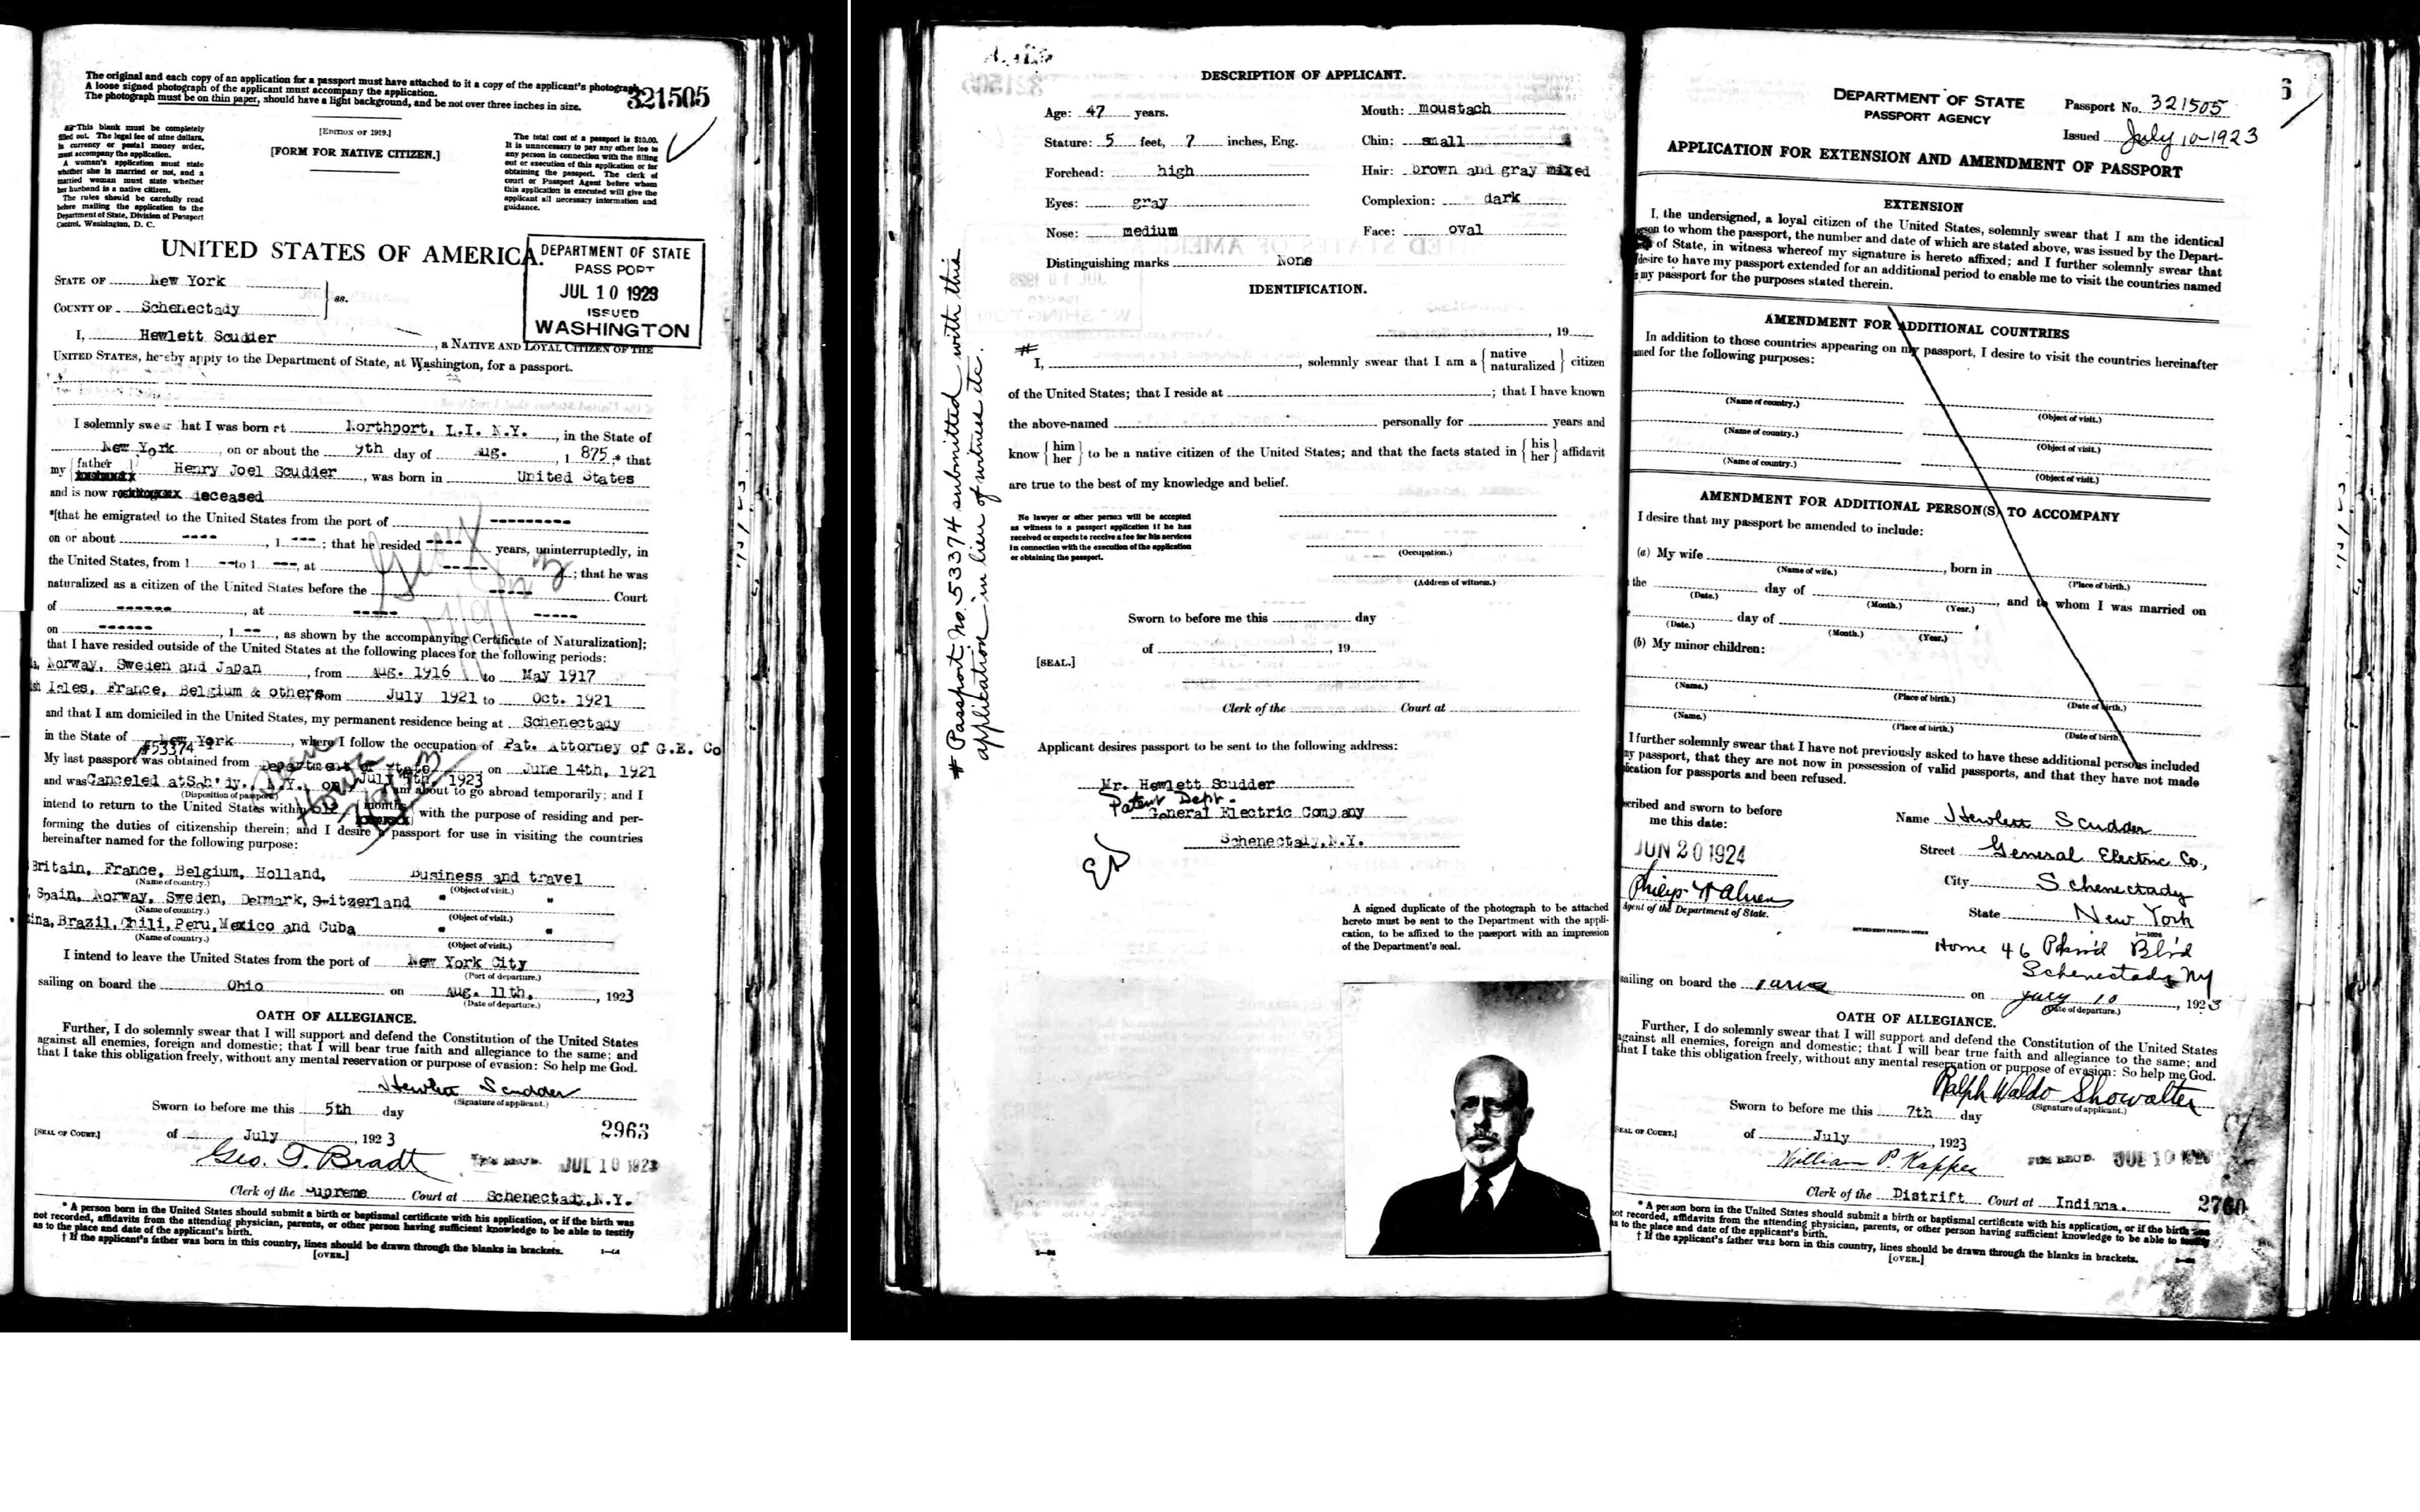 The original and each copy of an application for a passport must have attached to it a copy of the applicant's photograph.
A loose signed photograph of the applicant must accompany the application.
The photograph must be on thin paper, should have a light background, and be not over three inches in size.
321505
This blank must be completely
filled out. The legal fee of nine dollars,
in currency or postal money order,
must accompany the application.
A woman's application must state
whether she is married or not, and a
married woman must state whether
her husband is a native citizen.
The rules should be carefully read
before mailing the application to the
Department of State, Division of Passport
Control, Washington, D. C.
[EDITION OF 1919.]
[FORM FOR NATIVE CITIZEN.]
The total cost of a passport is $10.00.
It is unnecessary to pay any other fee to
any person in connection with the filling
out or execution of this application or for
obtaining the passport. The clerk of
court or Passport Agent before whom
this application is executed will give the
applicant all necessary information and
guidance.
UNITED STATES OF AMERICA.
DEPARTMENT OF STATE
PASSPORT
JUL 10 1923
ISSUED
WASHINGTON
STATE OF New York
COUNTY OF Schenectady
ss.
I, Hewlett Scudder, a NATIVE AND LOYAL CITIZEN OF THE
UNITED STATES, hereby apply to the Department of State, at Washington, for a passport.
I solemnly swear that I was born at Northport, L.I. N.Y., in the State of
New York, on or about the 9th day of Aug., 1875,* that
my father Henry Joel Scudder, was born in United States
and is now deceased
*[that he emigrated to the United States from the port of ---------
on or about ----, 1 ---; that he resided ---- years, uninterruptedly, in
the United States, from 1 -- to 1 ---, at -----; that he was
naturalized as a citizen of the United States before the ----- Court
of ------, at ----- -----
on ------, 1 --, as shown by the accompanying Certificate of Naturalization];
that I have resided outside of the United States at the following places for the following periods:
Norway, Sweden and Japan, from Aug. 1916 to May 1917
Isles, France, Belgium & others from July 1921 to Oct. 1921
and that I am domiciled in the United States, my permanent residence being at Schenectady
in the State of New York, where I follow the occupation of Pat. Attorney of G.E. Co
#53374
My last passport was obtained from Department of State on June 14th, 1921
and was Canceled at Sch'dy., N.Y., on July 5th, 1923 I am about to go abroad temporarily; and I
(Disposition of passport.)
intend to return to the United States within six months with the purpose of residing and per-
forming the duties of citizenship therein; and I desire a passport for use in visiting the countries
hereinafter named for the following purpose:
Britain, France, Belgium, Holland, Business and travel
(Name of country.) (Object of visit.)
Spain, Norway, Sweden, Denmark, Switzerland " "
(Name of country.) (Object of visit.)
Brazil, Chili, Peru, Mexico and Cuba " "
(Name of country.) (Object of visit.)
I intend to leave the United States from the port of New York City
(Port of departure.)
sailing on board the Ohio on Aug. 11th, 1923
(Date of departure.)
OATH OF ALLEGIANCE.
Further, I do solemnly swear that I will support and defend the Constitution of the United States
against all enemies, foreign and domestic; that I will bear true faith and allegiance to the same; and
that I take this obligation freely, without any mental reservation or purpose of evasion: So help me God.
Hewlett Scudder
(Signature of applicant.)
Sworn to before me this 5th day
2963
[SEAL OF COURT.] of July, 1923
Geo. T. Bradt
JUL 10 1923
Clerk of the Supreme Court at Schenectady, N.Y.
* A person born in the United States should submit a birth or baptismal certificate with his application, or if the birth was
not recorded, affidavits from the attending physician, parents, or other person having sufficient knowledge to be able to testify
as to the place and date of the applicant's birth.
† If the applicant's father was born in this country, lines should be drawn through the blanks in brackets.
[OVER.]
DESCRIPTION OF APPLICANT.
Age: 47 years. Mouth: moustach
Stature: 5 feet, 7 inches, Eng. Chin: small
Forehead: high Hair: brown and gray mixed
Eyes: gray Complexion: dark
Nose: medium Face: oval
Distinguishing marks None
IDENTIFICATION.
, 19
# I, , solemnly swear that I am a { native naturalized } citizen
of the United States; that I reside at ; that I have known
the above-named personally for years and
know { him her } to be a native citizen of the United States; and that the facts stated in { his her } affidavit
are true to the best of my knowledge and belief.
No lawyer or other person will be accepted
as witness to a passport application if he has
received or expects to receive a fee for his services
in connection with the execution of the application
or obtaining the passport.
(Occupation.)
(Address of witness.)
Sworn to before me this day
of , 19
[SEAL.]
Clerk of the Court at
# Passport no. 53374 submitted with this
application in lieu of witness etc.
Applicant desires passport to be sent to the following address:
Mr. Hewlett Scudder
Patent Dept.
General Electric Company
Schenectady, N.Y.
A signed duplicate of the photograph to be attached
hereto must be sent to the Department with the appli-
cation, to be affixed to the passport with an impression
of the Department's seal.
DEPARTMENT OF STATE
PASSPORT AGENCY
Passport No. 321505
Issued July 10-1923
APPLICATION FOR EXTENSION AND AMENDMENT OF PASSPORT
EXTENSION
I, the undersigned, a loyal citizen of the United States, solemnly swear that I am the identical
to whom the passport, the number and date of which are stated above, was issued by the Depart-
of State, in witness whereof my signature is hereto affixed; and I further solemnly swear that
desire to have my passport extended for an additional period to enable me to visit the countries named
my passport for the purposes stated therein.
AMENDMENT FOR ADDITIONAL COUNTRIES
In addition to those countries appearing on my passport, I desire to visit the countries hereinafter
for the following purposes:
(Name of country.) (Object of visit.)
(Name of country.) (Object of visit.)
(Name of country.) (Object of visit.)
AMENDMENT FOR ADDITIONAL PERSON(S) TO ACCOMPANY
I desire that my passport be amended to include:
(a) My wife , born in
(Name of wife.) (Place of birth.)
the day of , and to whom I was married on
(Date.) (Month.) (Year.)
day of
(Date.) (Month.) (Year.)
(b) My minor children:
(Name.) (Place of birth.) (Date of birth.)
(Name.) (Place of birth.) (Date of birth.)
I further solemnly swear that I have not previously asked to have these additional persons included
my passport, that they are not now in possession of valid passports, and that they have not made
for passports and been refused.
and sworn to before
me this date:
JUN 20 1924
Agent of the Department of State.
Name Hewlett Scudder
Street General Electric Co,
City Schenectady
State New York
Home 46 Blvd
Schenectady NY
sailing on board the on July 10, 1923
(Date of departure.)
OATH OF ALLEGIANCE.
Further, I do solemnly swear that I will support and defend the Constitution of the United States
against all enemies, foreign and domestic; that I will bear true faith and allegiance to the same; and
that I take this obligation freely, without any mental reservation or purpose of evasion: So help me God.
Ralph Waldo Showalter
(Signature of applicant.)
Sworn to before me this 7th day
SEAL OF COURT.] of July, 1923
William P. Kappes
FEE REC'D. JUL 10 1923
Clerk of the Distrift Court at Indiana.
2760
* A person born in the United States should submit a birth or baptismal certificate with his application, or if the birth was
not recorded, affidavits from the attending physician, parents, or other person having sufficient knowledge to be able to testify
as to the place and date of the applicant's birth.
† If the applicant's father was born in this country, lines should be drawn through the blanks in brackets.
[OVER.]